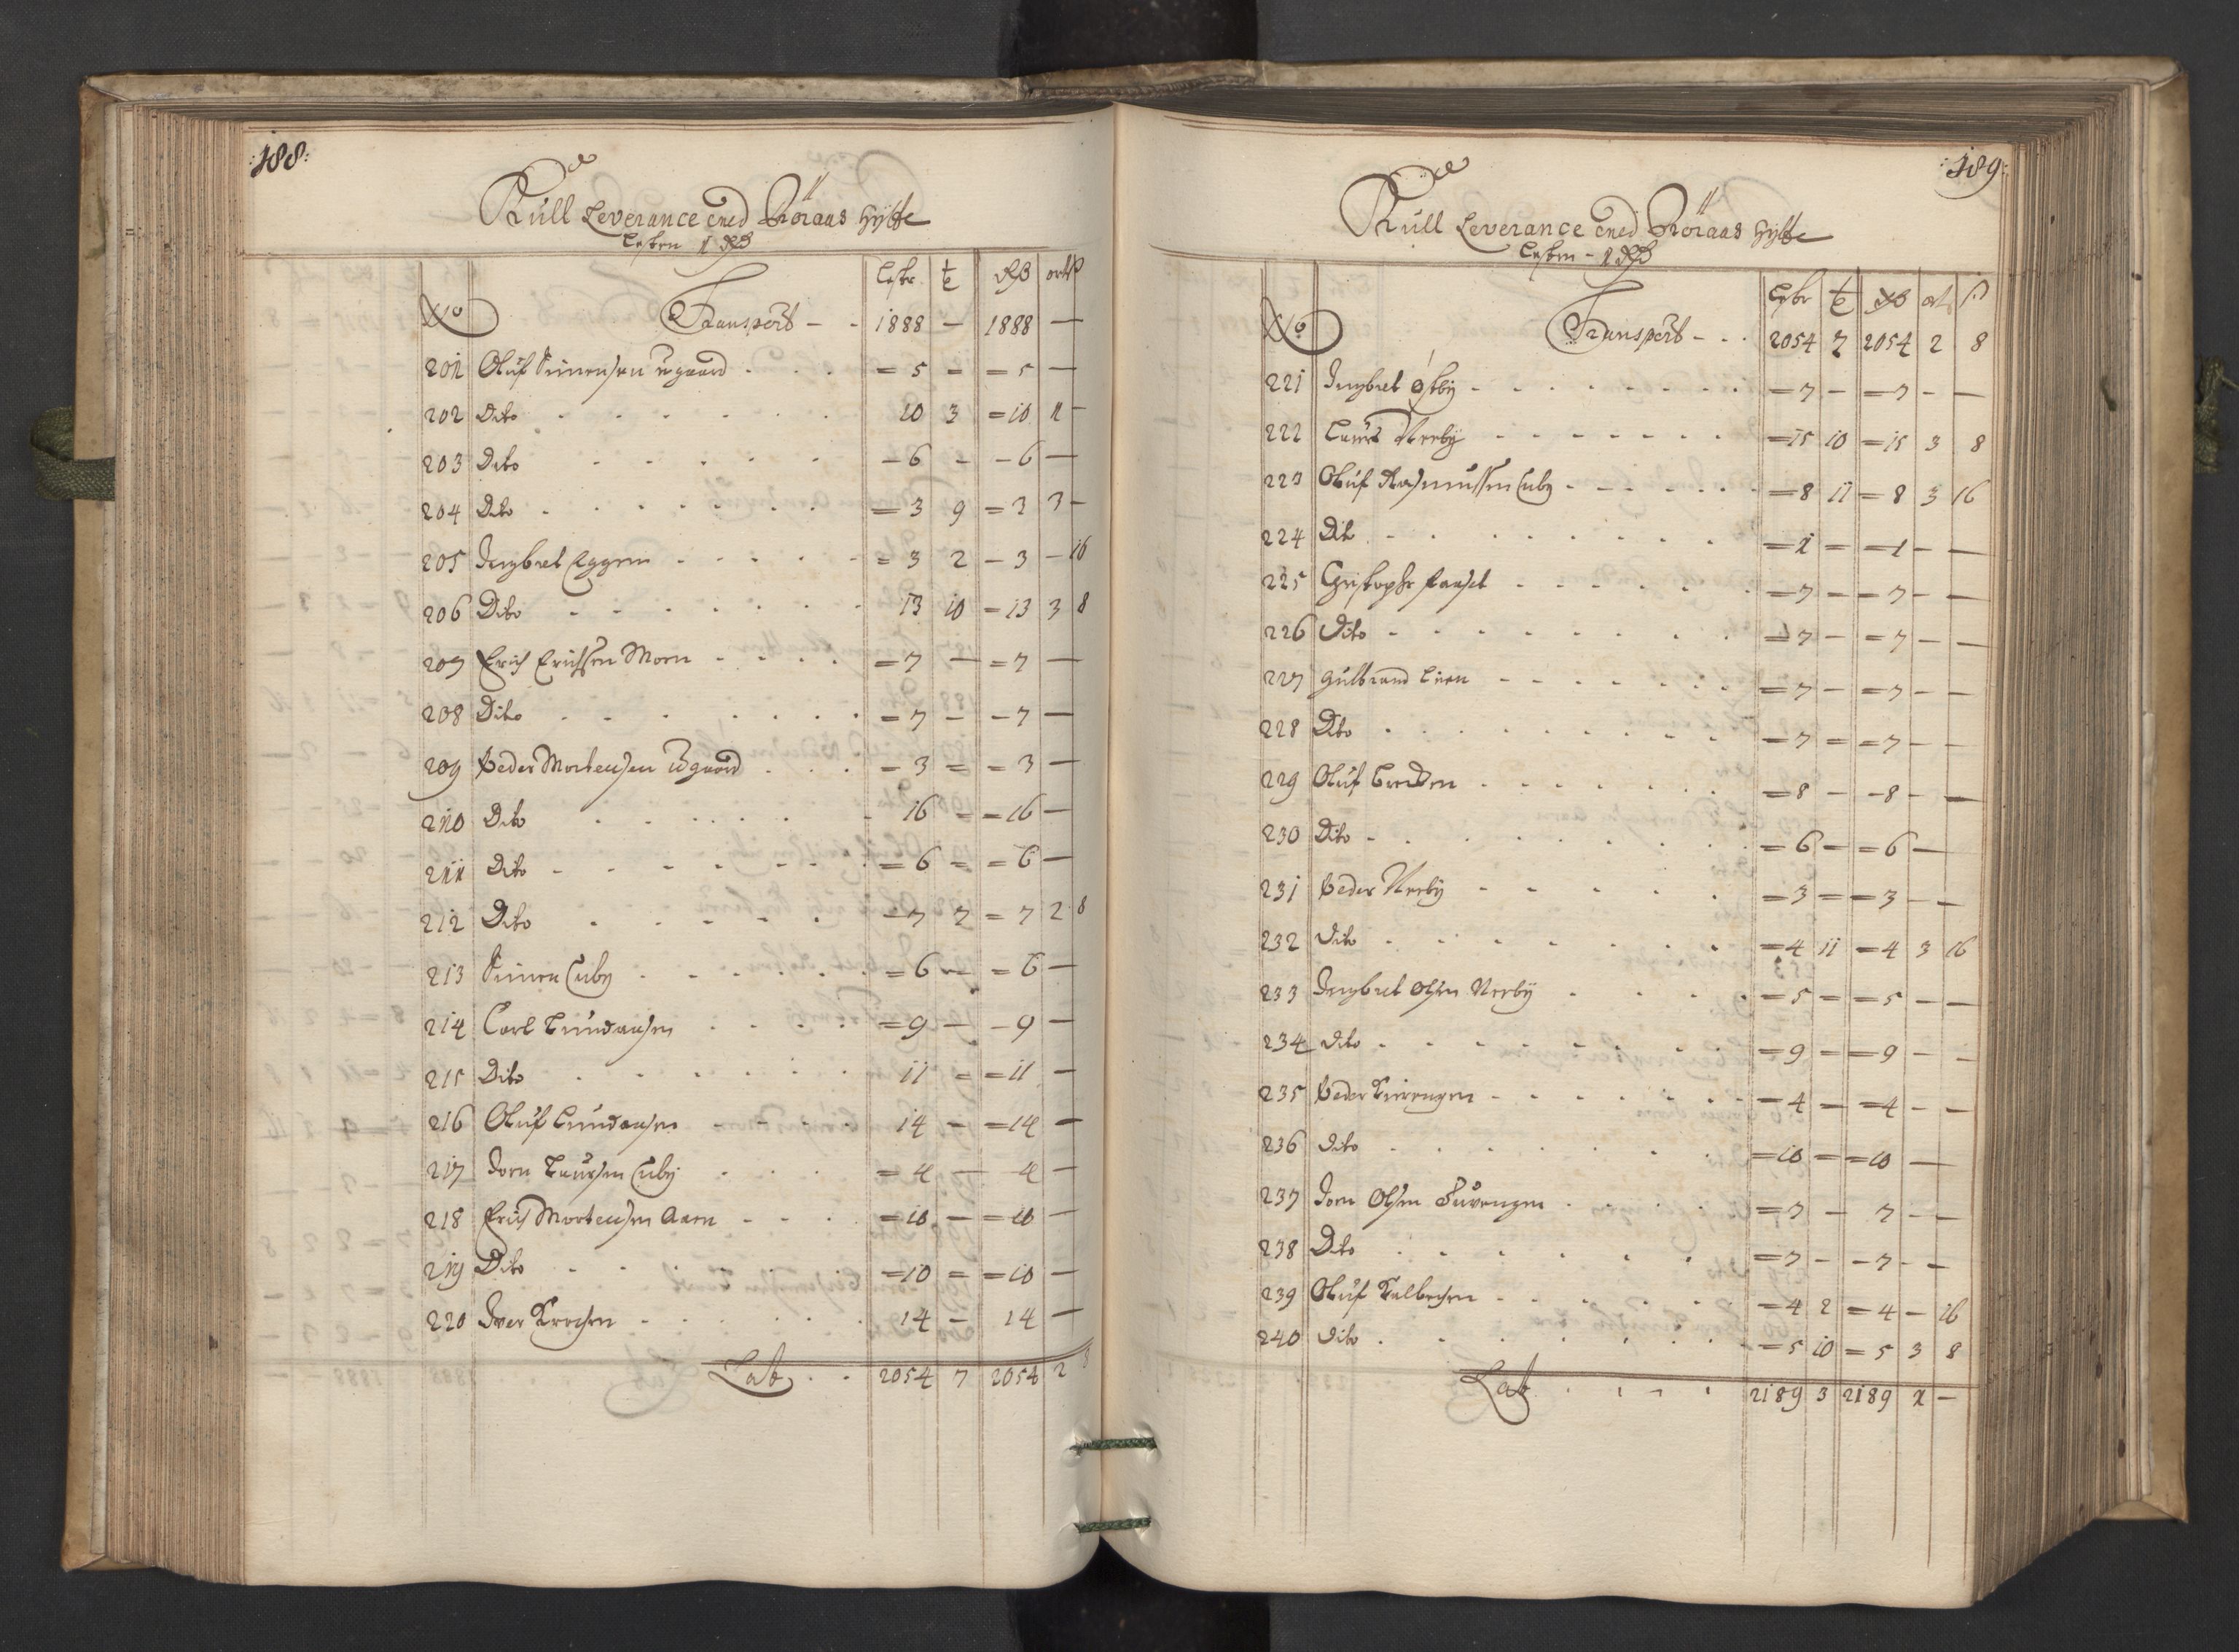 :188:
Kull Leverance Med Röraas Hytte
Lesten 1 Rd
No Lester t Rd ort ß
Transport - - 1888 - 1888 -
201 Oluf Simensen Ugaard = 5 = = 5 -
202 Dito 10 3 = 10 1 -
203 Dito - 6 - - 6 -
204 Dito = 3 9 = 3 3 -
205 Ingbret Eggen = 3 2 - 3 - 16
206 Dito 13 10 = 13 3 8
207 Erich Erichsen Moen = 7 - = 7 -
208 Dito = 7 - - 7 -
209 Peder Mortensen Ugaard = 3 = = 3 -
210 Dito 16 = = 16 -
211 Dito = 6 = = 6 -
212 Dito = 7 7 = 7 2 8
213 Simen Euby = 6 - = 6 -
214 Carl = 9 - - 9 -
215 Dito 11 = = 11 -
216 Oluf 14 - = 14 -
217 Joen Laursen Euby = 4 - 4 -
218 Erich Mortensen Aaen = 10 - = 10 -
219 Dito = 10 = = 10 -
220 Iver 14 - 14 -
Lat. 2054 7 2054 2 8
:189:
Kull Leverance Med Röraas Hytte
Lesten - 1 Rd
No Lester t Rd ort ß
Transport - - 2054 7 2054 2 8
221 Ingbret Østby = 7 - = 7 - -
222 Laurs Nerby = 15 10 = 15 3 8
223 Oluf Rasmussen Euby = 8 11 = 8 3 16
224 Dito = 1 = = 1 - -
225 Christopher = 7 - = 7 - -
226 Dito = 7 - = 7 - -
227 Gulbrand Lien = 7 - = 7 - -
228 Dito = 7 = = 7 - -
229 Oluf = 8 - - 8 - -
230 Dito = 6 - = 6 -
231 Peder Nerby = 3 = = 3 - -
232 Dito = 4 11 = 4 3 16
233 Ingbret Olsen Nerby = 5 = = 5 - -
234 Dito = 9 - = 9 - -
235 Peder = 4 - = 4 - -
236 Dito = 10 = = 10 -
237 Joen Olsen Tuvengen = 7 - 7 - -
238 Dito = 7 - - 7 - -
239 Oluf = 4 2 = 4 - 16
240 Dito = 5 10 = 5 3 8
Lat. 2189 3 2189 1 -